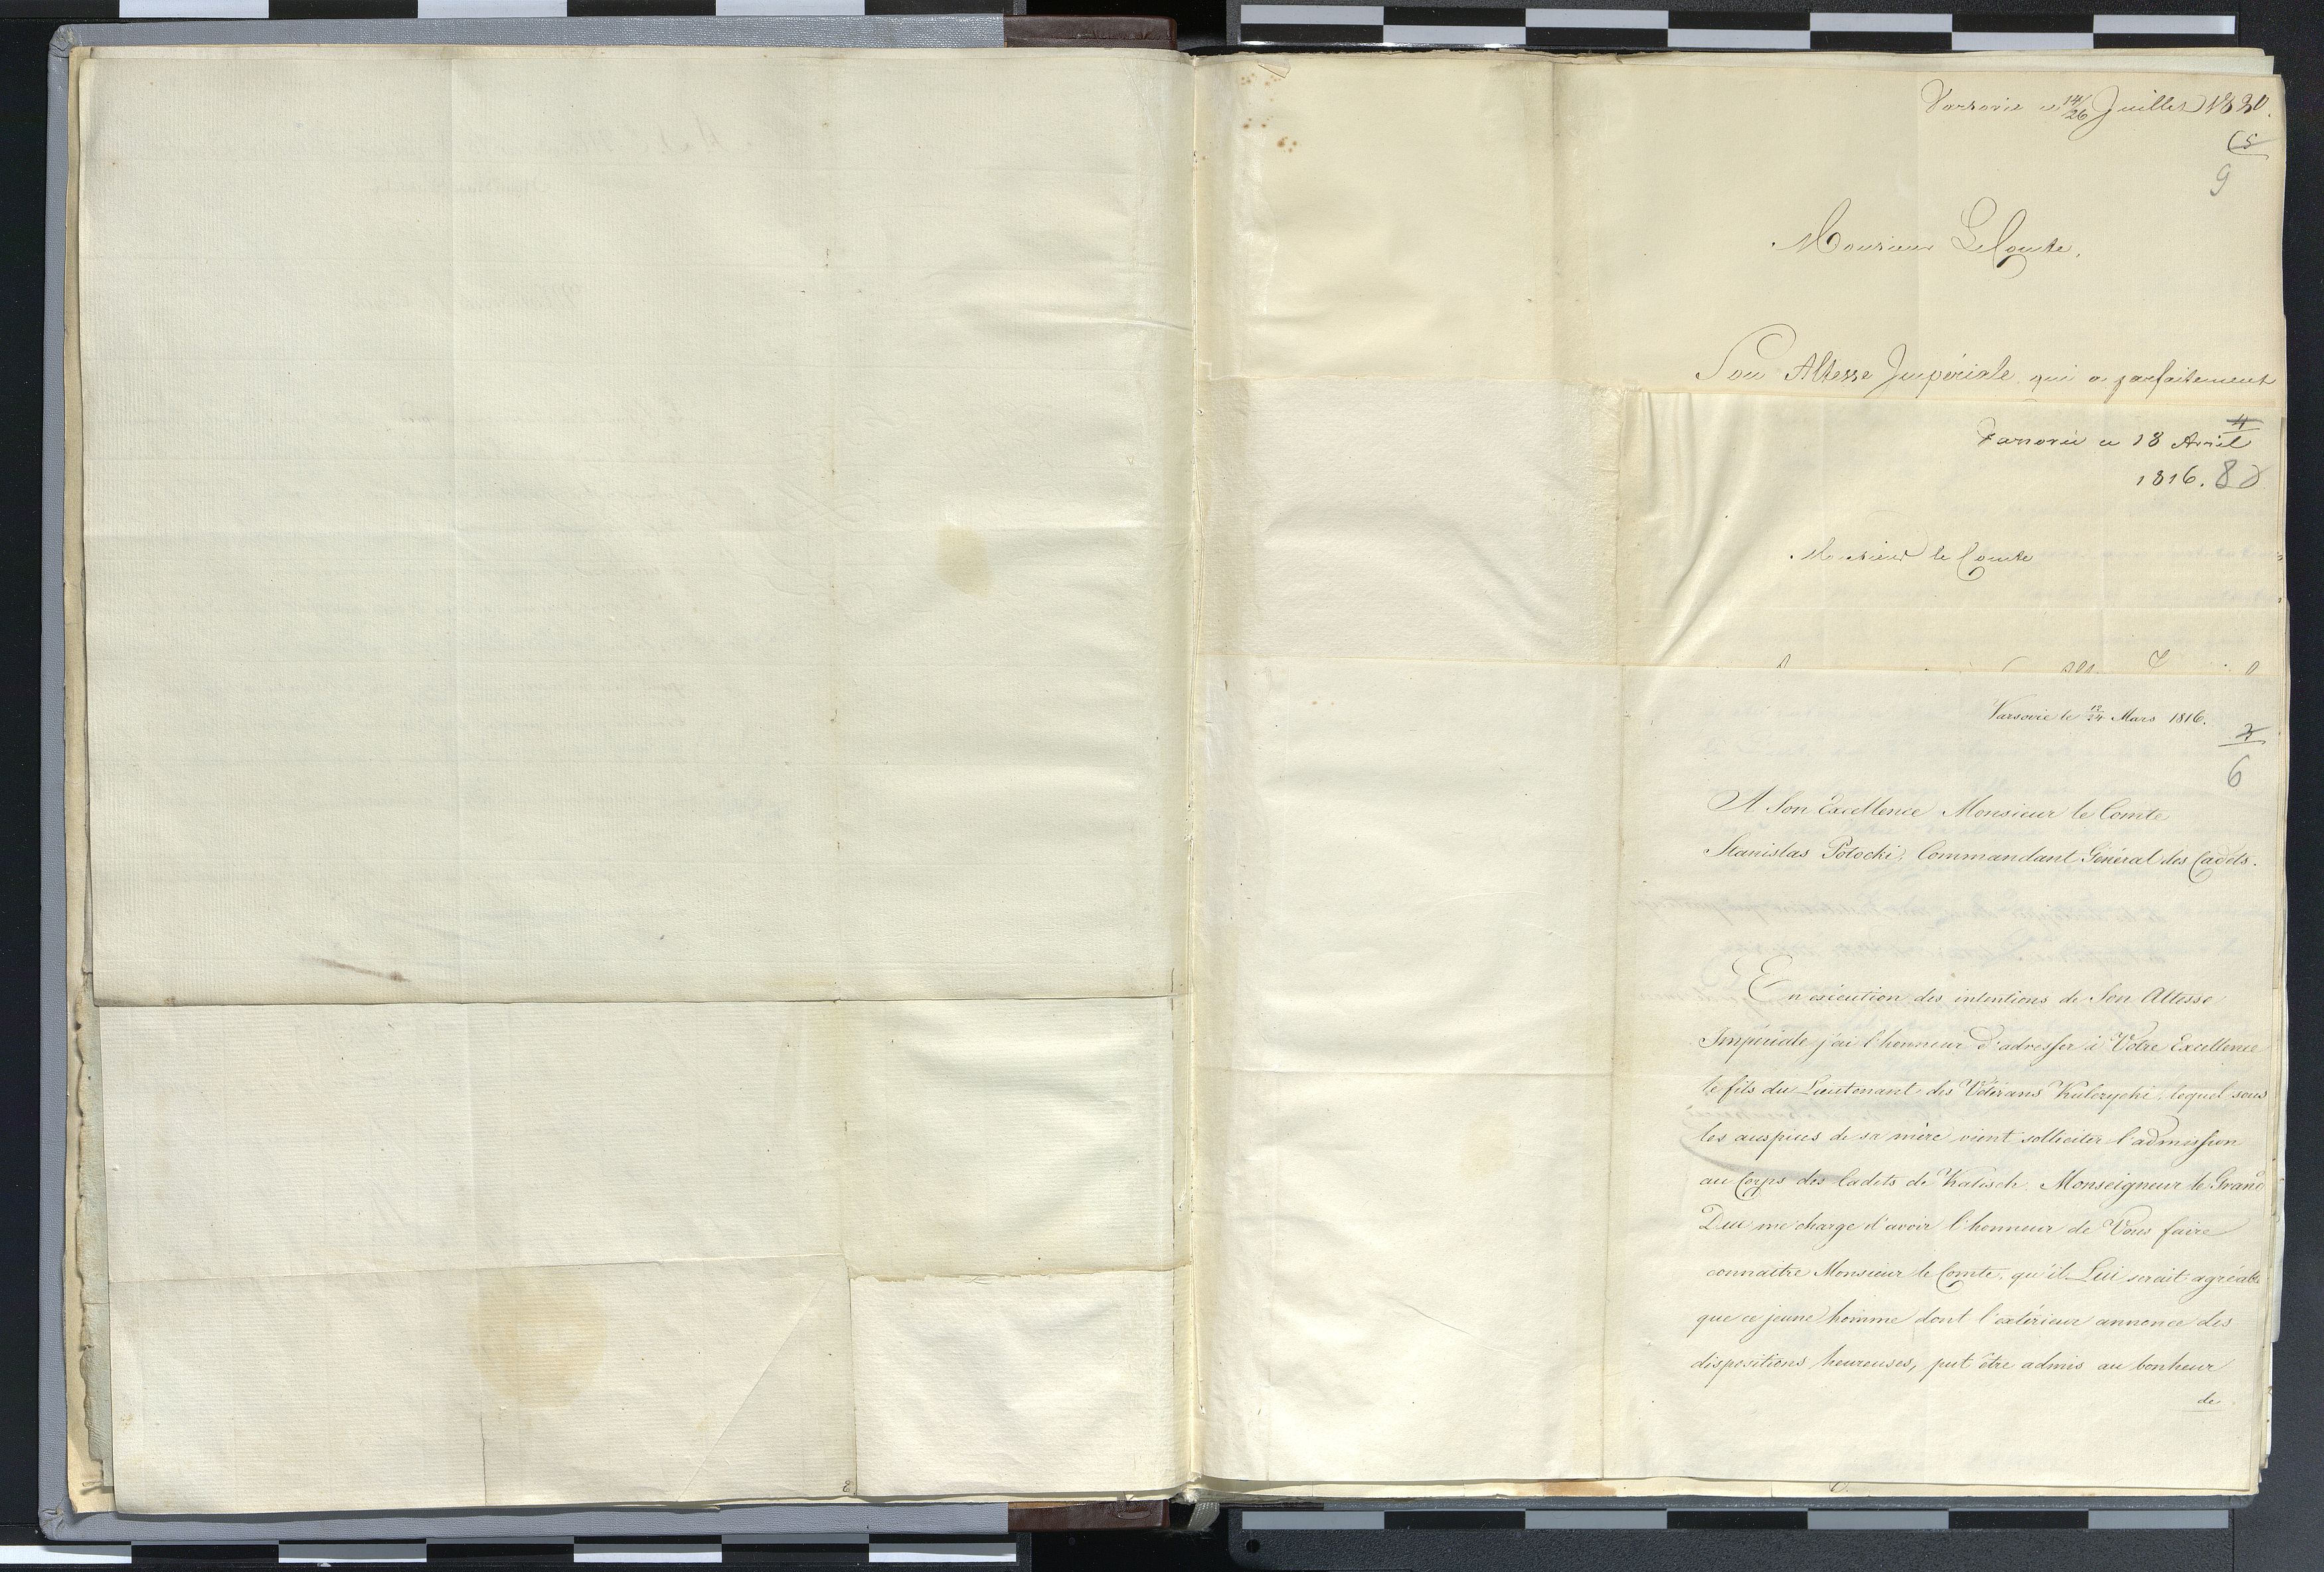 Varsovie ce 14/26 Juillet 1820.
5
9
Monsieur Le Comte,
Son Altesse Impériale qui a parfaitement
4
Varsovie ce 18 Avril
1816. 8
Monsieur le Comte
Varsovie le 12/24 Mars 1816.
3
6
A Son Excellence Monsieur le Comte
Stanislas Potocki, Commandant Général des Cadets.
En exécution des intentions de Son Altesse
Impériale j'ai l'honneur d'adresser à Votre Excellence
le fils du Lieutenant des Vétérans Kulczycki, lequel sous
les auspices de sa mère vient solliciter l'admission
au Corps des Cadets de Kalisch. Monseigneur le Grand
Duc me charge d'avoir l'honneur de Vous faire
connaître Monsieur le Comte, qu'il Lui serait agréable
que ce jeune homme dont l'extérieur annonce des
dispositions heureuses, put être admis au bonheur
de
8